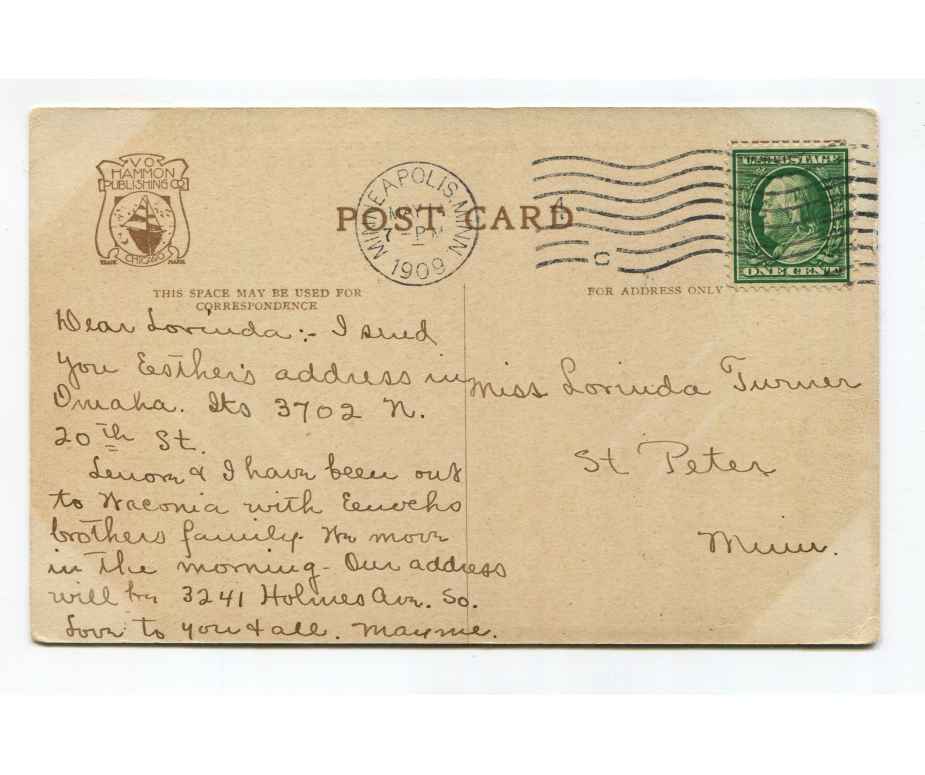 V.O.
HAMMON
PUBLISHING CO
CHICAGO
TRADE MARK
MINNEAPOLIS, MINN
MAY
7 - PM
1909
POST CARD
4
C
U.S. POSTAGE
ONE CENT
THIS SPACE MAY BE USED FOR
CORRESPONDENCE
FOR ADDRESS ONLY
Dear Lorinda:- I send
you Esther's address in
Omaha. Its 3702 N.
20th St.
Lenore & I have been out
to Waconia with
brothers family. We move
in the morning - Our address
will be 3241 Holmes Ave. So.
Love to you & all. Mayme.
Miss Lorinda Turner
St Peter
Minn.